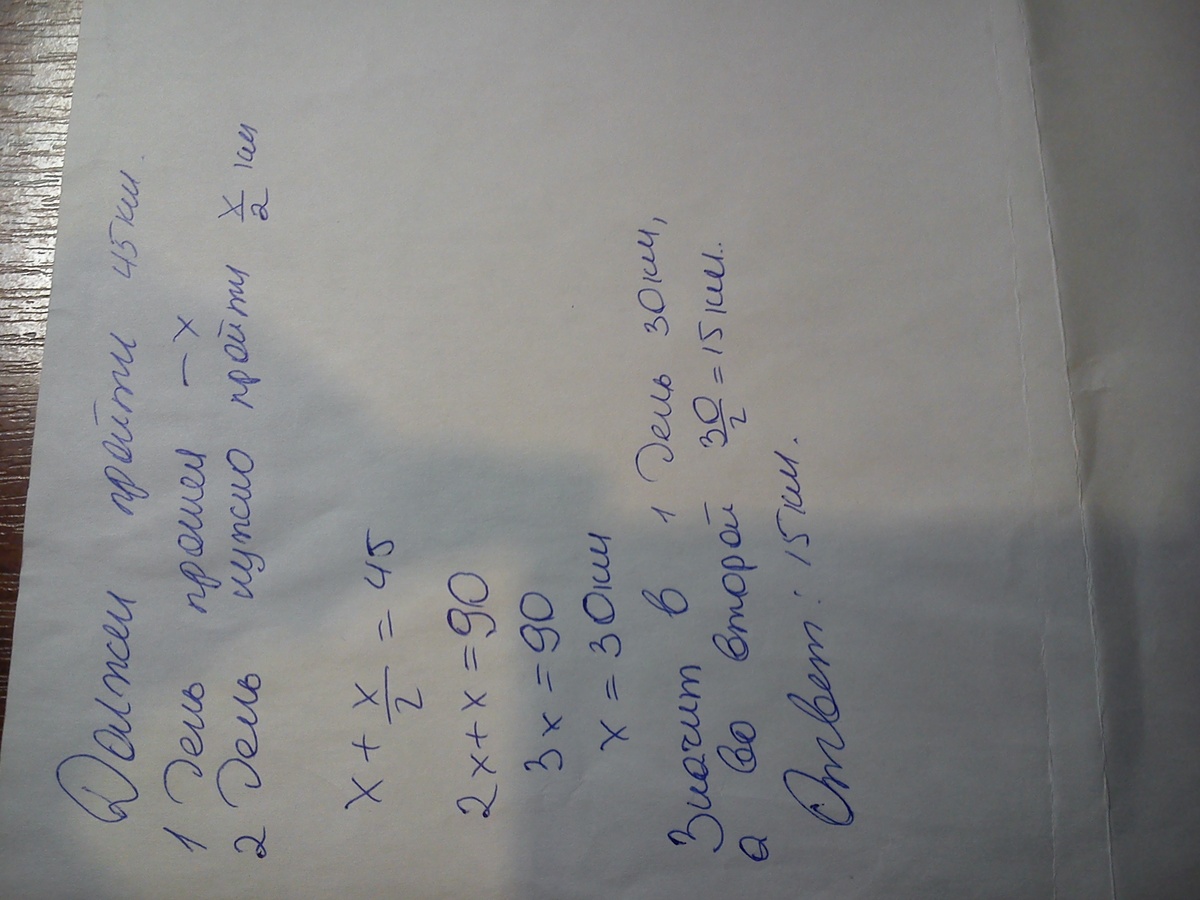 Должен пройти 45 км.
1 день прошел – x
2 день нужно пройти x/2 км
x + x/2 = 45
2x + x = 90
3x = 90
x = 30 км
Значит в 1 день 30 км,
а во второй 30/2 = 15 км.
Ответ: 15 км.